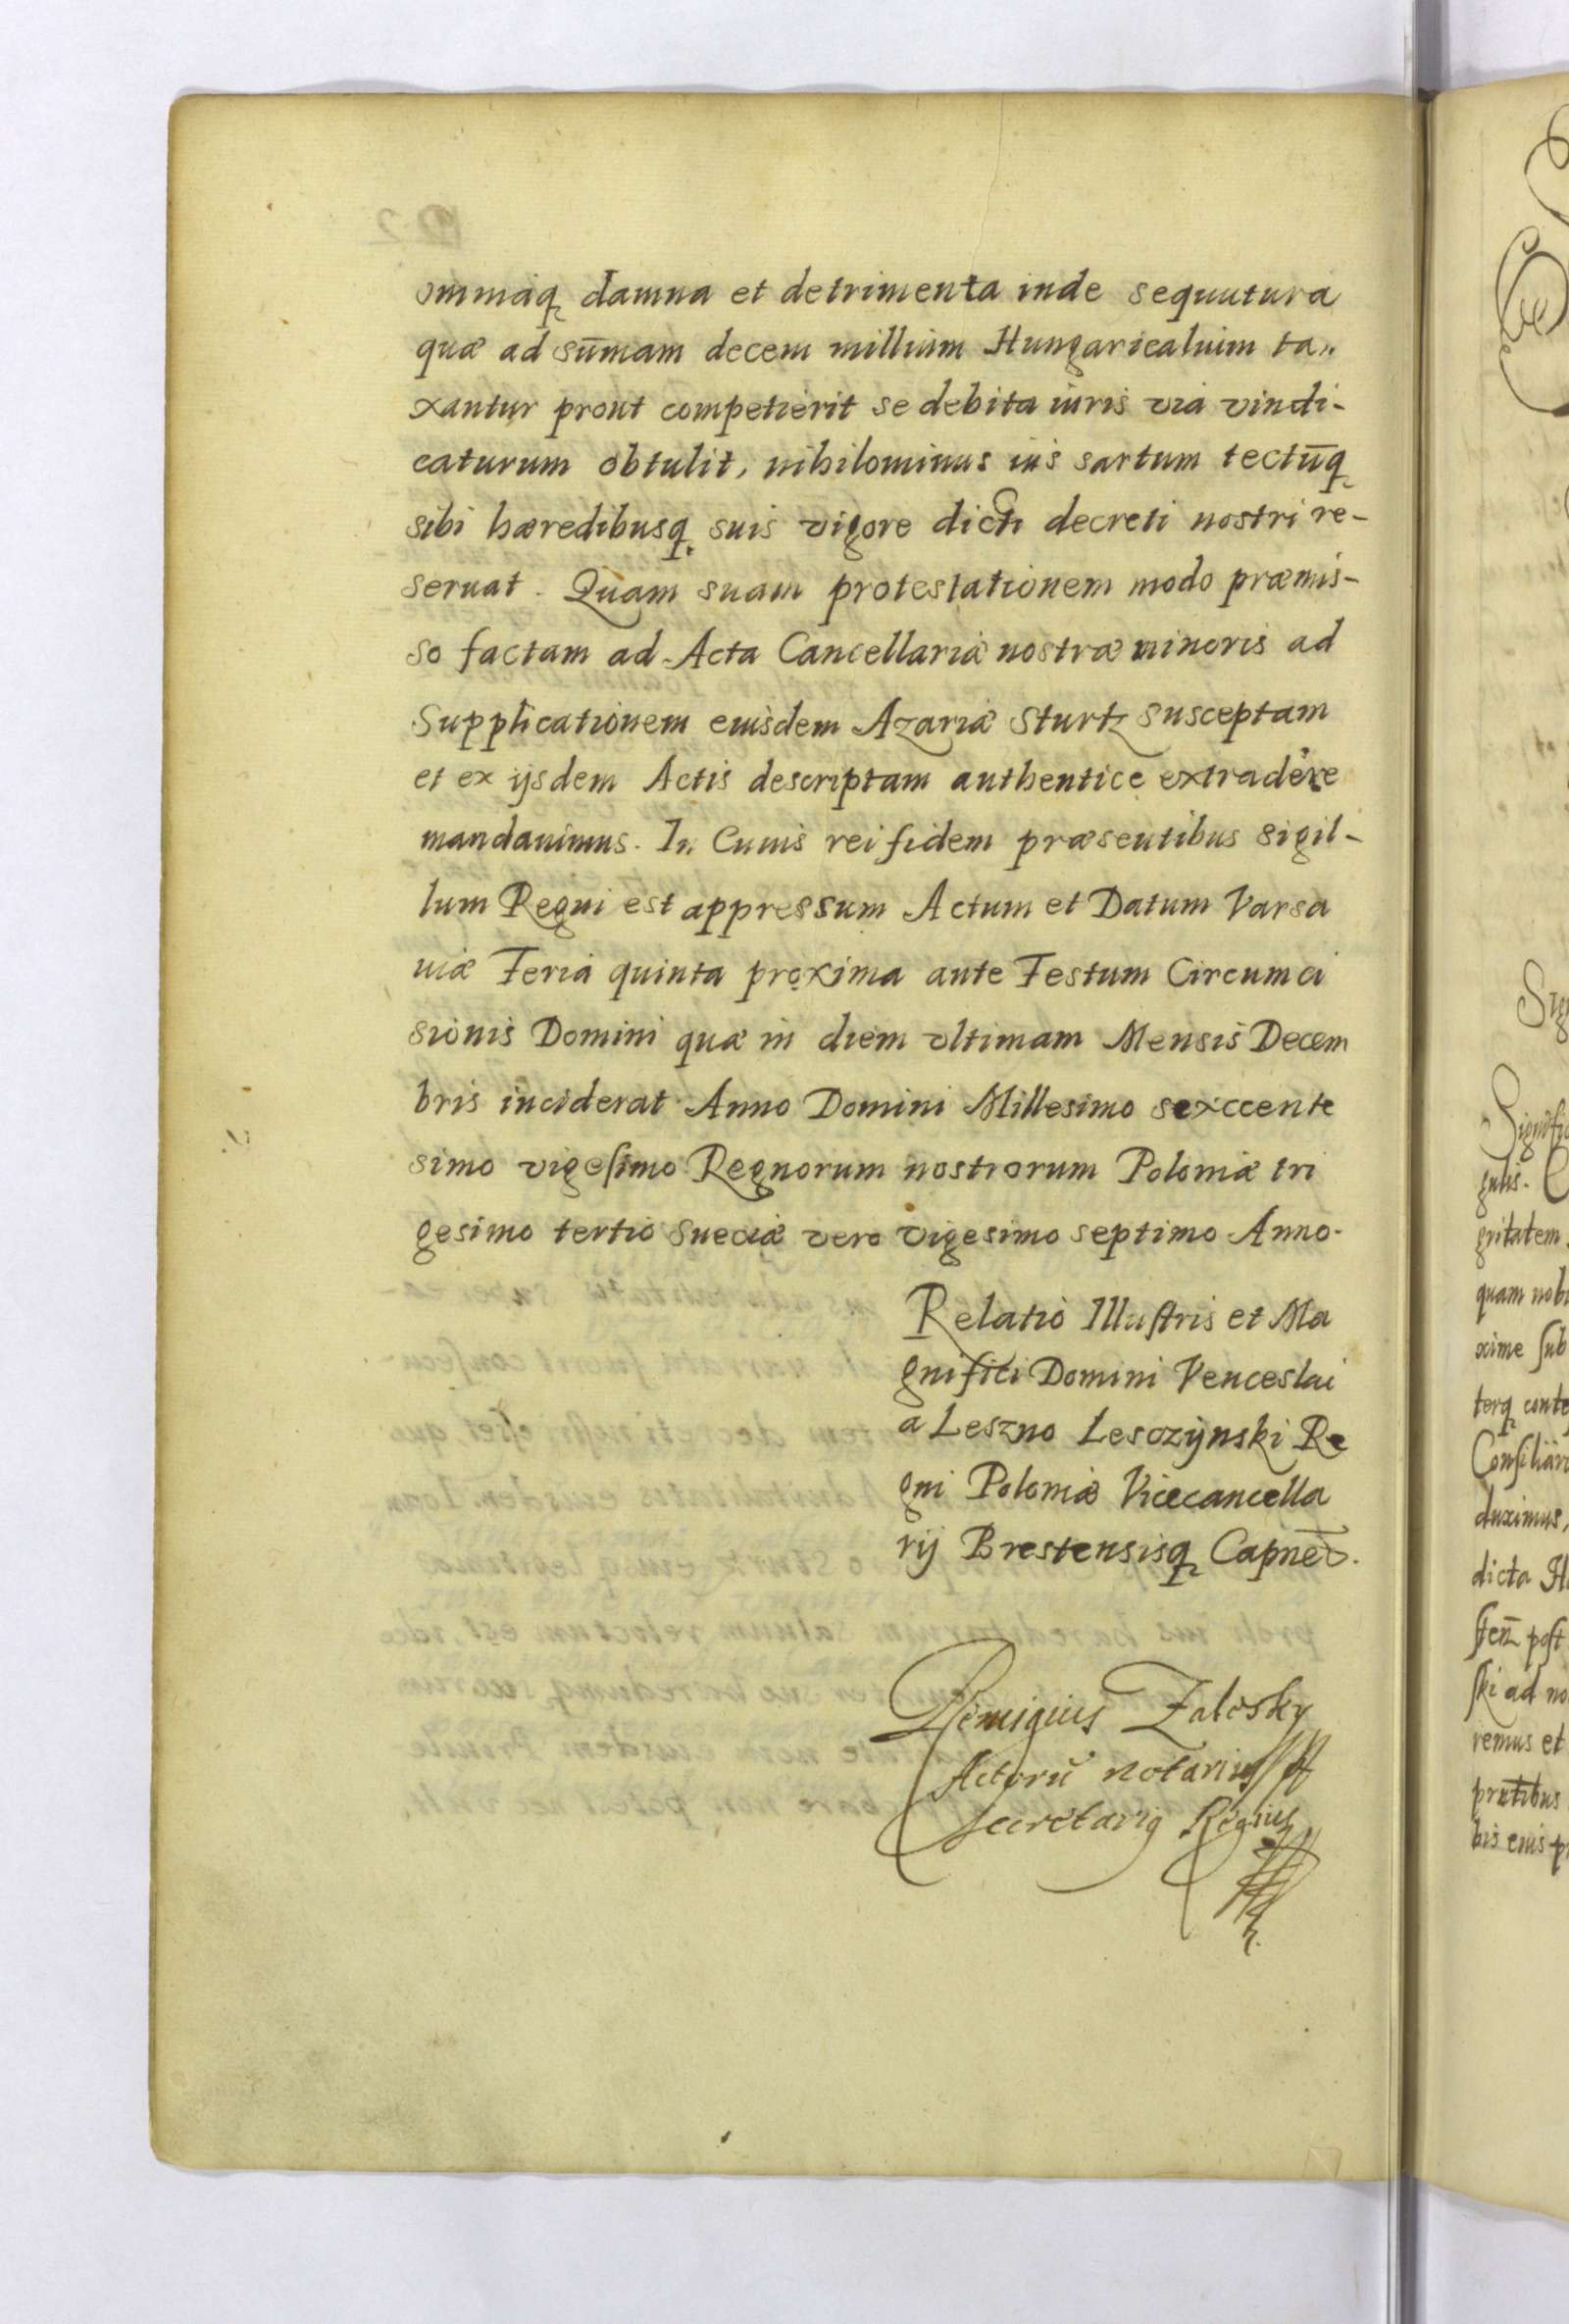 omniaq damna et detrimenta inde sequutura
quæ ad sūmam decem millium Hungaricalium ta,,
xantur prout competierit se debita iuris via vindi-
caturum obtulit, nihilominus ius sartum tectūq
sibi hæredibusq suis vigore dicti decreti nostri re-
seruat. Quam suam protestationem modo præmis-
so factam ad Acta Cancellariæ nostræ minoris ad
Supplicationem eiusdem Azariæ Sturtz susceptam
et ex ijsdem Actis descriptam authentice extradere
mandauimus. In Cuius rei fidem præsentibus sigil-
lum Regni est appressum Actum et Datum Varsa
uiæ Feria quinta proxima ante Festum Circumci
sionis Domini quæ in diem vltimam Mensis Decem
bris inciderat Anno Domini Millesimo sexccente
simo vigesimo Regnorum nostrorum Poloniæ tri
gesimo tertio Sueciæ vero vigesimo septimo Anno.
Relatio Illustris et Ma
gnifici Domini Venceslai
a Leszno Lesczÿnski Re
gni Poloniæ Vicecancella
rij Brestensisq Capnei.
Remigius Zalesky
Actorū Notarius
Secretariq Regius
Signific
gulis.
gritatem.
quam nobi
xime sub
terq conte
Consiliari
duximus,
dicta
post
ski ad no
remus et
bis eius p